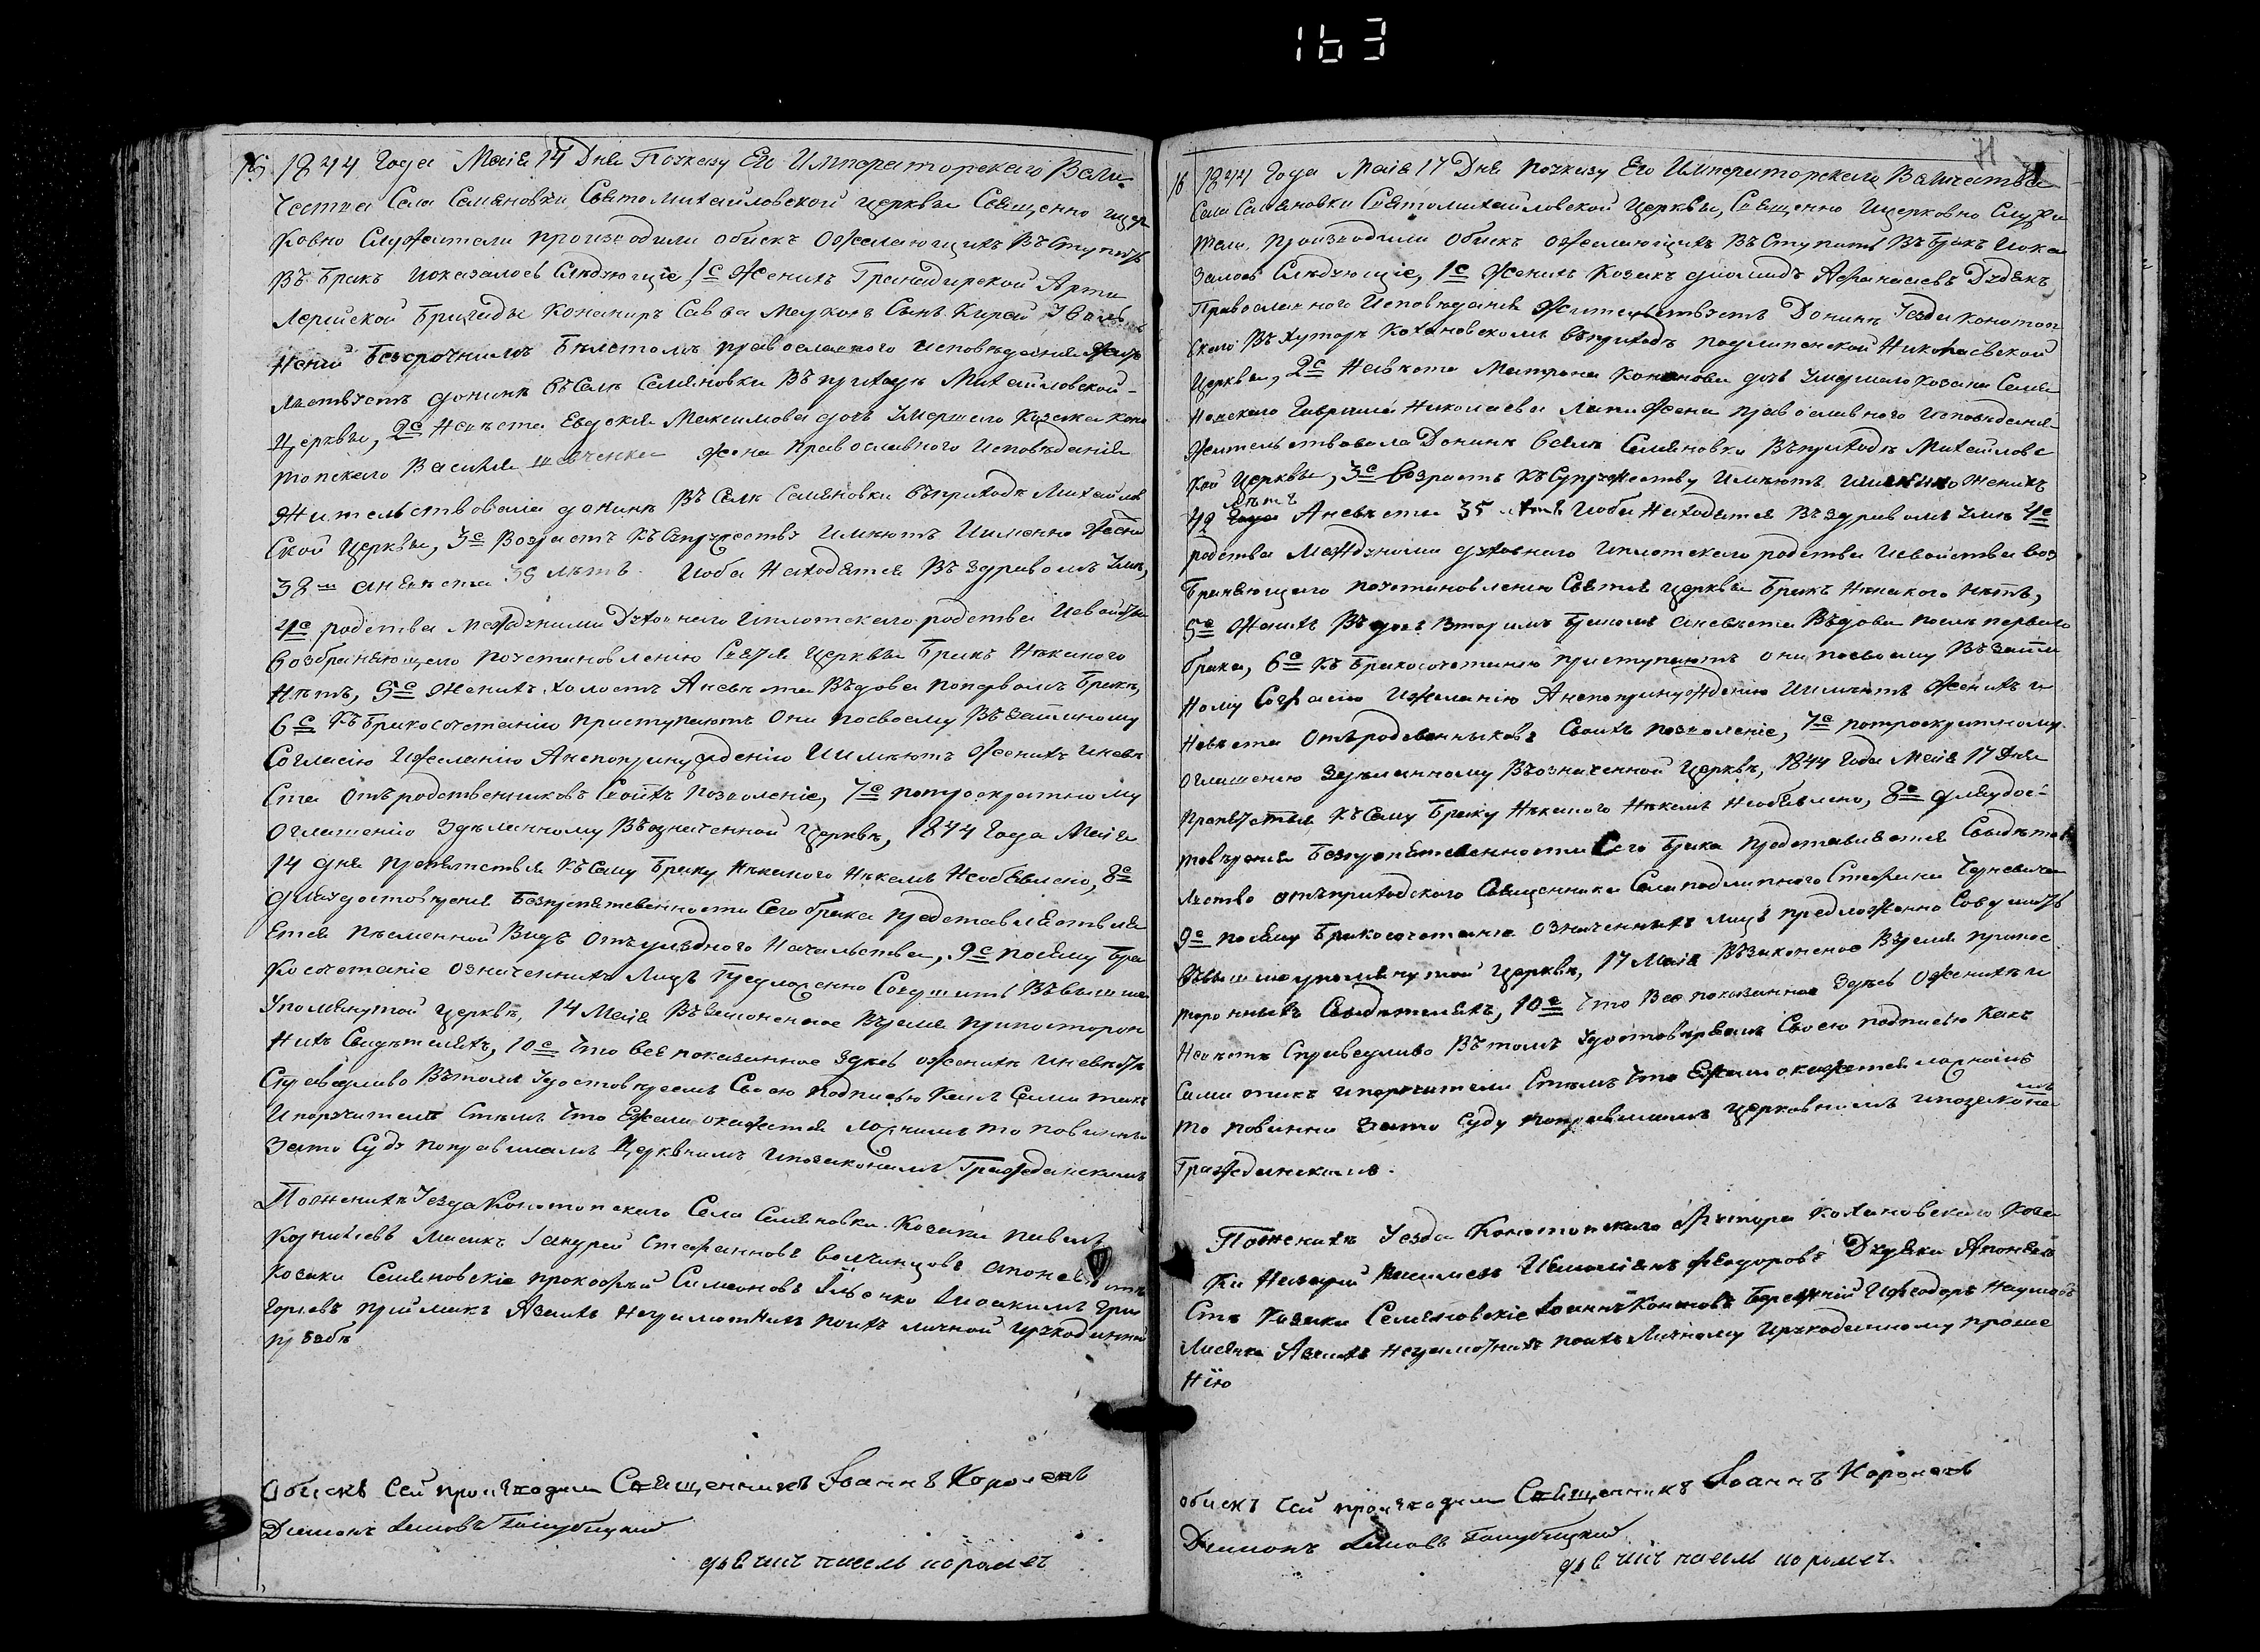 163
15 1844 Года Маія 14 Дня Поуказу Его Императорскаго Вели
чества Села Семяновки Святомихайловской церкви Священно ицер
ковно Служители произходили обискъ Ожелающихъ Въступить
Въ Бракъ иоказалось Слѣдующіе, 1е Женихъ Гранадирской Арти
лерійской Бригады Канониръ Савва Сынъ Кирей Уволь
неній Безсрочнимъ Билетомъ православного исповѣданія Жит
льствуетъ донинѣ въСелѣ Семяновки Въ приходѣ Михайловской
Церкви, 2е Невѣста Евдокія Максимова дочь Умершаго Козака коно
топскаго Василія шевченка Жена Православного Исповѣданія
Жительствовала донинѣ Въ Селѣ Семяновки въприходѣ Михайлов
ской Церкви, 3е Возрастъ КъСупружеству Имѣютъ Именно Жени
38 аневѣста 35 лѣтъ Иоба Находятся Въ здравомъ Умѣ,
4е родства Междуними Духовнаго Иплотскаго родства Исвойства
возбраняющаго поустановленію Святія церкви Бракъ Нѣкакого
Нѣтъ, 5е Женихъ холостъ Аневѣста Въдова попервомъ Бракѣ,
6е КъБракосочетанію приступаютъ Они посвоему Възаимному
Согласію Ижеланію Анепопринуждению Иимѣютъ Женихъ иневѣ
ста Отъродственниковъ Своихъ позволеніе, 7е потроекратному
оглашенію Здѣланному Въозначенной Церквѣ, 1844 Года Маія
14 дня препятствія КъСему Браку Нѣкакого Нѣкемъ Необявлено, 8е
дляудостовѣренія Безпрепятственности Сего брака представляется
Писменной Видъ Отъуѣздного Начальства, 9е посему Бра
косочетаніе означенныхъ Лицъ Предложенно Совершить Въвыше
упомянутой церквѣ, 14 Маія Възаконенное Время припосторон
нихъ Свидѣтеляхъ, 10е Что всё показанное Здѣсь ожениху иневѣстѣ
Справедливо Вътомъ Удостовѣряемъ Своею подписью Какъ Сами такъ
Ипоручители Стѣмъ Что Ежели окажется ложнимъ то повинны
Зато Суду поправиламъ Церквнимъ Ипозаконамъ Гражданскимъ
Поженихѣ Уезда Конотопскаго Села Семяновки Козаки павелъ
Корніевъ Масикъ Іандрей Стефановъ апоневѣстѣ
Козаки Семяновскіе прокофій Симоновъ Ільенко Іоакимъ Григ
горьевъ приймакъ Азаихъ Неграмотнихъ поихъ личной ирукоданной
прозбѣ
Обискъ Сей произходил Священникъ Іоаннъ Короленъ
Диякон Голубицкий
71
16 1844 Года Маія 17 Дня Поуказу Его Императорскаго Величества
Села Семяновки Святомихайловской Церкви, Священно Ицерковно Служи
тели Произходили Обискъ ожелающихъ Въступить Въ Бракъ Иока
залось Слѣдующіе, 1е Женихъ Козакъ Афанасіевъ Дудякъ
Православного Исповѣданія Жительствуетъ Донинѣ Уезда Конотоп
скаго Въ Хуторѣ Кохановскомъ въприходѣ подлипенской Николаевской
Церкви, 2е Невѣста Матрона Кононова дочь Умершаго Козака Семя
новскаго Гавриила Николаева Жена православного Исповѣданія
Жительствовала Донинѣ Вселѣ Семяновки Въприходѣ Михайловс
кой Церкви, 3е Возрастъ КъСупружеству Имѣютъ именно женихъ
49 лѣтъ Аневѣста 35 лѣтъ Иоба Находятся Въздравомъ Умѣ 4е
родства Междуними духовнаго Иплотскаго родства Исвойства воз
браняющаго поустановленію Святія Церкви Бракъ Нѣкакого Нѣтъ,
5е Женихъ Въдовъ Вторимъ Бракомъ аневѣста Въдова послѣ первого
брака, 6е Къ Бракосочетанію приступаютъ они посвоему Възаим
ному Согласію Ижеланію Анепопринуждению Иимѣютъ Женихъ и
Невѣста Отъродственниковъ Своихъ позволеніе, 7е потроекратному
оглашению Здѣланному Въозначенной Церквѣ, 1844 Года Маія 17 Дня
Препятствія КъСему Браку Нѣкакого Нѣкемъ Необявлено, 8е дляудос
товѣренія Безпрепятственности Сего Брака представляется Свидѣте
льство отъприходского Священника Села подлипного Стефана Черневича
9е посему Бракосочетание означеннихъ лицъ предложенно Совершить
Въвышеупомянутой Церквѣ, 17 Маія Възаконное Время припос
торонныхъ Свидѣтеляхъ, 10е Что Все показанное Здѣсь Ожениху и
Невѣстѣ Справедливо Вътомъ Удостовѣряемъ Своею подписью Какъ
Сами такъ ипоручители Стѣмъ Что Ежели окажется ложнимъ
то повинны Зато Суду поправиламъ церковнимъ ипозакона
мъ
Гражданскимъ.
Поженихѣ Уезда Конотопского Хутора Кохановскаго Коза
ки Назарій Федоровъ Дудяки Апоневѣ
стѣ Козаки Семяновскіе Іоаннъ Кононовъ Бережній Ифеодоръ Наумовъ
Лисенко Азаихъ Неграмотнихъ поихъ Личному Ирукоданному проше
нію
обискъ Сей произходил Священникъ Іоаннъ Короленъ
Диякон Голубицкий